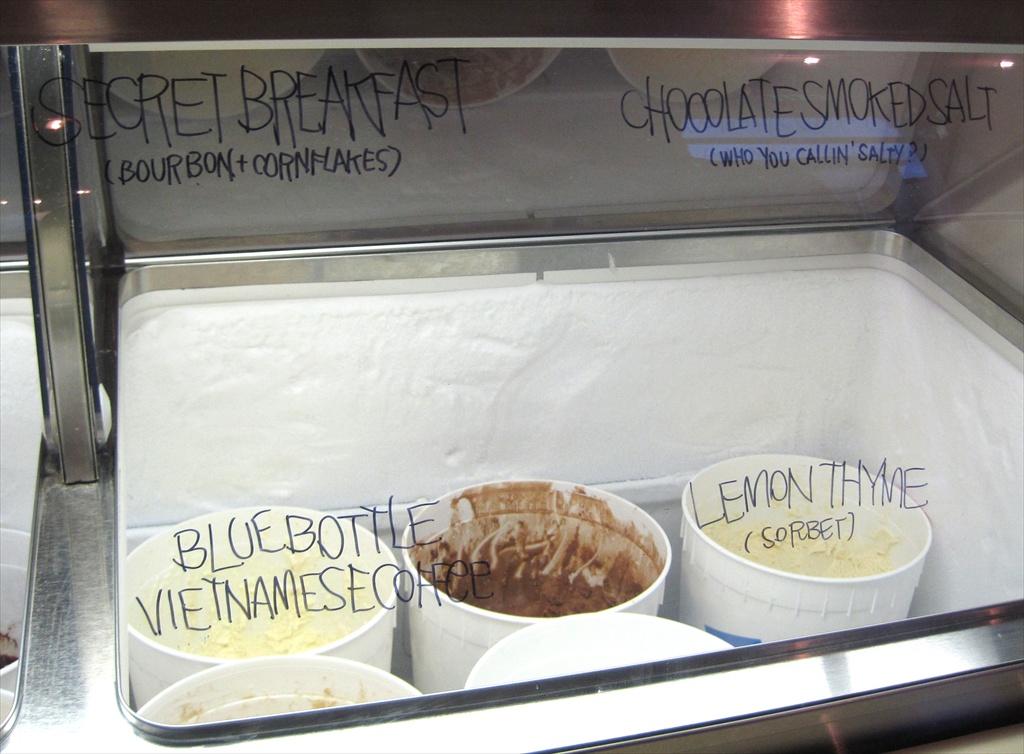 SECRET BREAKFAST
(BOURBON + CORNFLAKES)
CHOCOLATE SMOKED SALT
(WHO YOU CALLIN' SALTY?)
BLUE BOTTLE
VIETNAMESE COFFEE
LEMON THYME
(SORBET)